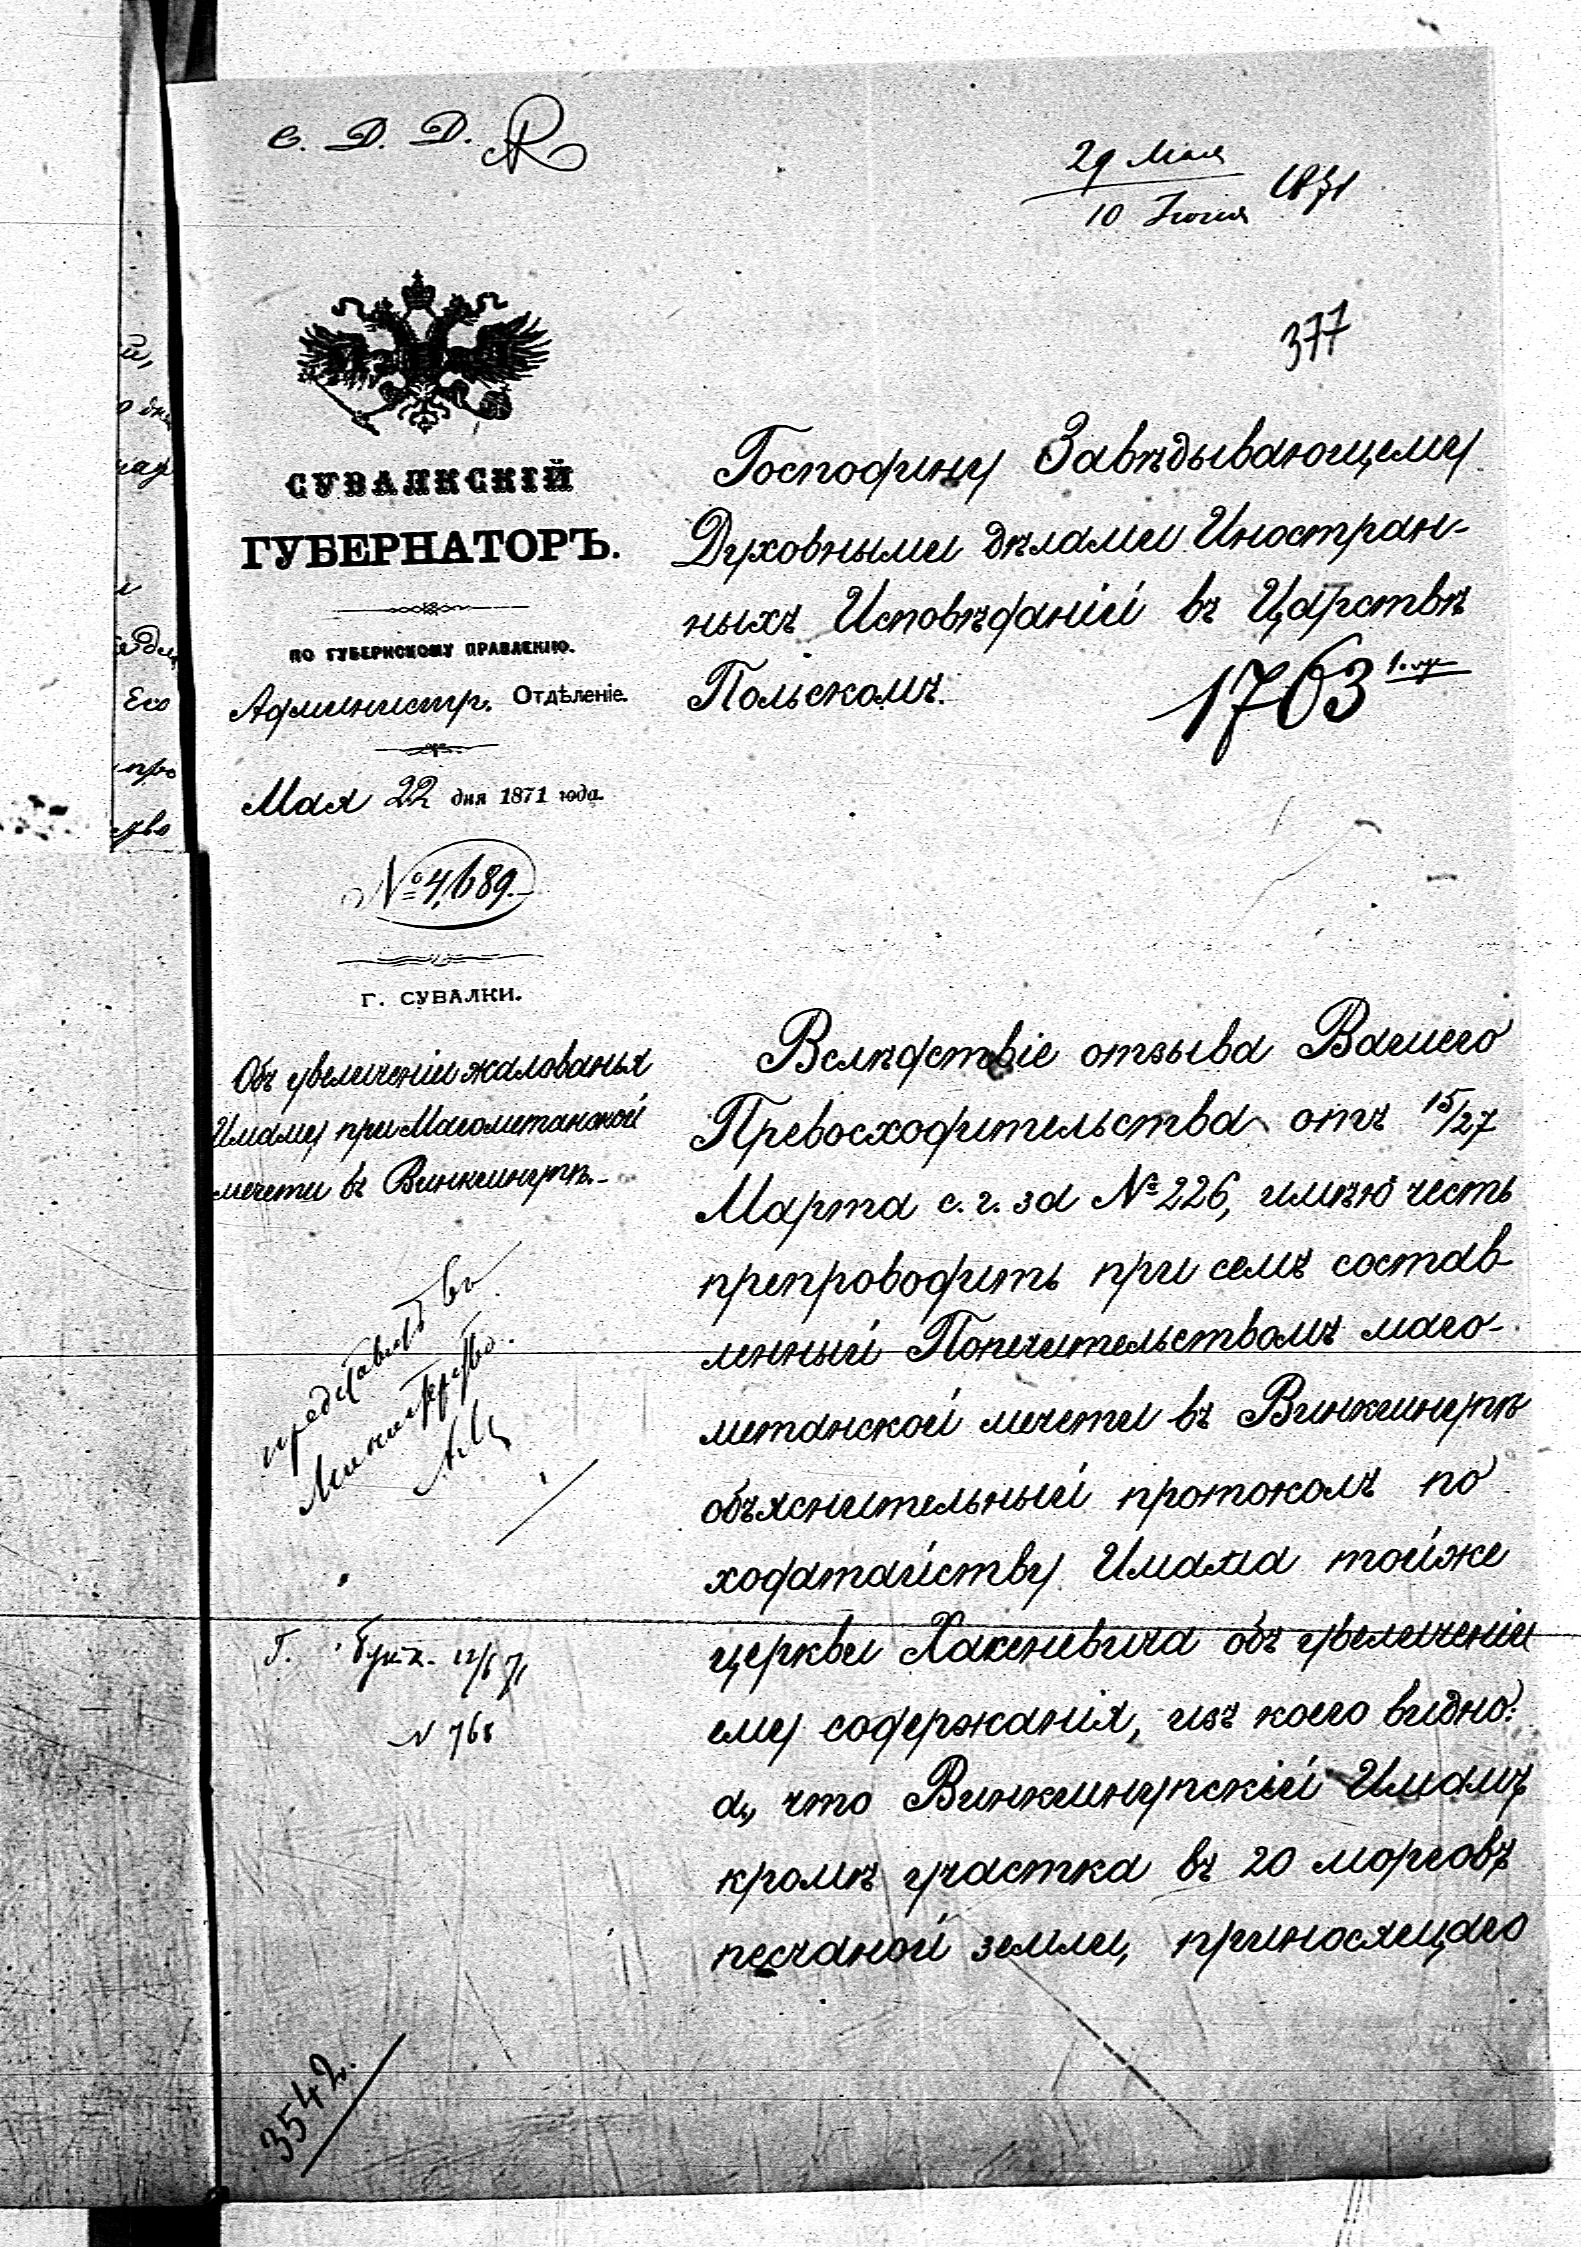 С. Д. Д.
29 Мая
10 Июня 1871
377
СУВАЛКСКІЙ
ГУБЕРНАТОРЪ.
ПО ГУБЕРНСКОМУ ПРАВЛЕНІЮ.
Администр. Отдѣленіе.
Мая 22 дня 1871 года.
№ 4,689.
Г. СУВАЛКИ.
Объ увеличеніи жалованья
Имаму при Магометанской
мечети въ Винкшнупѣ.
представить въ
Министерство.
3542.
Господину Завѣдывающему
Духовными дѣлами Иностран-
ныхъ Исповѣданій въ Царствѣ
Польскомъ.
1763
Вслѣдствіе отзыва Вашего
Превосходительства отъ 15/27
Марта с. г. за № 226, имѣю честь
препроводить при семъ состав-
ленный Попечительствомъ маго-
метанской мечети въ Винкшнупѣ
объяснительный протоколъ по
ходатайству Имама тойже
церкви Хасеневича объ увеличеніи
ему содержанія, изъ коего видно:
а, что Винкшнупскій Имамъ
кромѣ участка въ 20 моргѡвъ
песчаной земли, приносящаго
Его